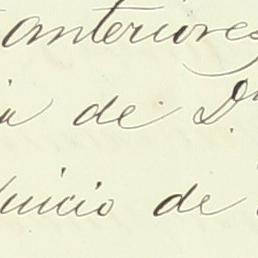 anteriores
de D
juicio de